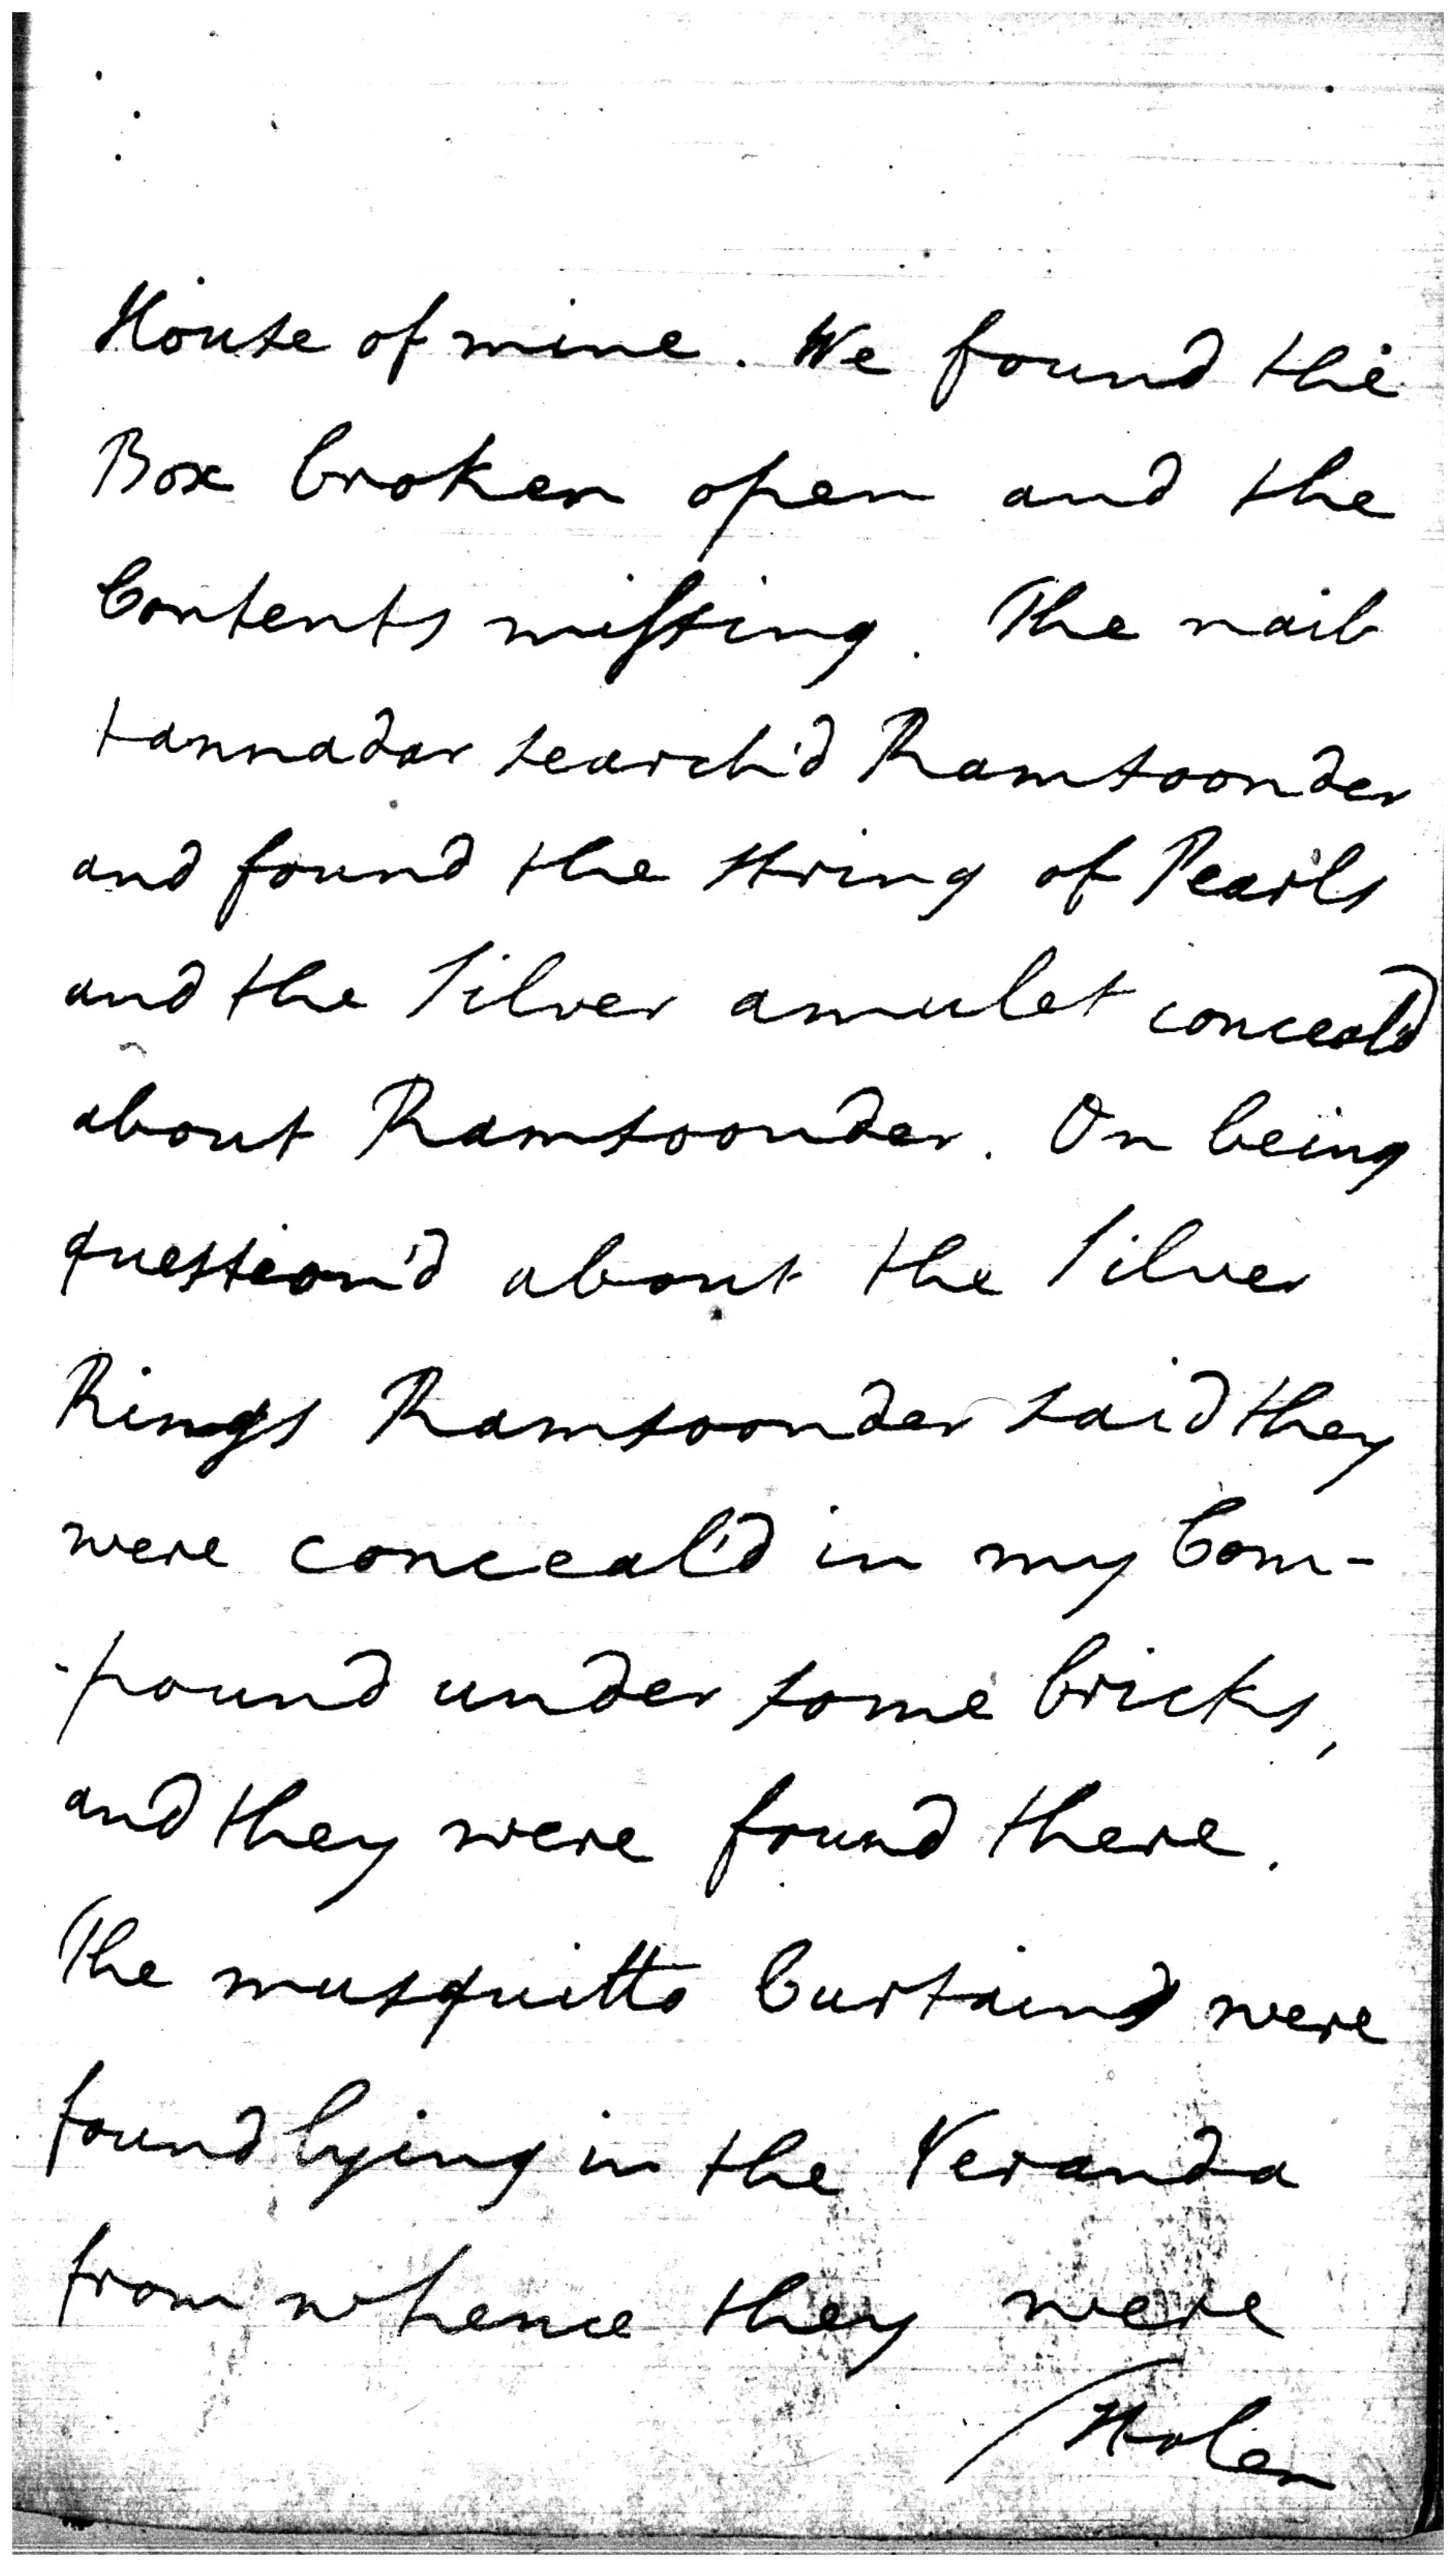 House of mine. We found the
Box broken open and the
Contents missing. The naib
tannadar search'd Ramsoonder
and found the string of Pearls
and the Silver amulet conceal'd
about Ramsoonder. On being
question'd about the Silver
Rings Ramsoonder said they
were conceal'd in my Com-
-pound under some bricks,
and they were found there.
The musquitto Curtains were
found lying in the Veranda
from whence they were
stolen